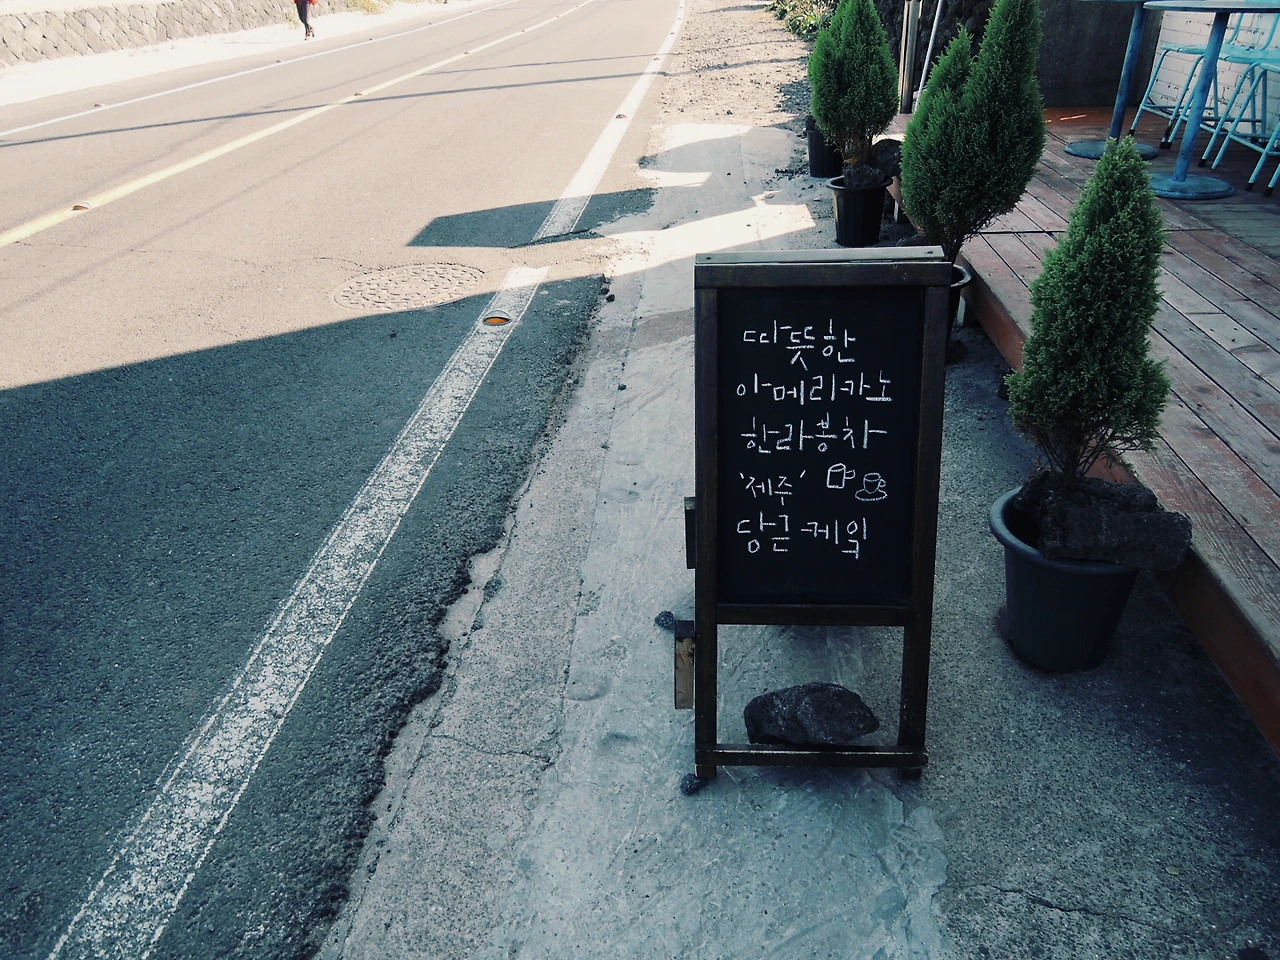 따뜻한
아메리카노
한라봉차
'제주'
당근 케익